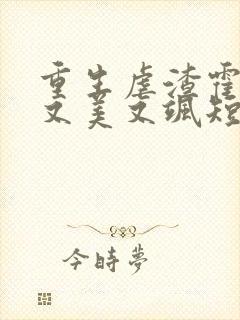 重生虐渣霍
又美又飒短
今時夢